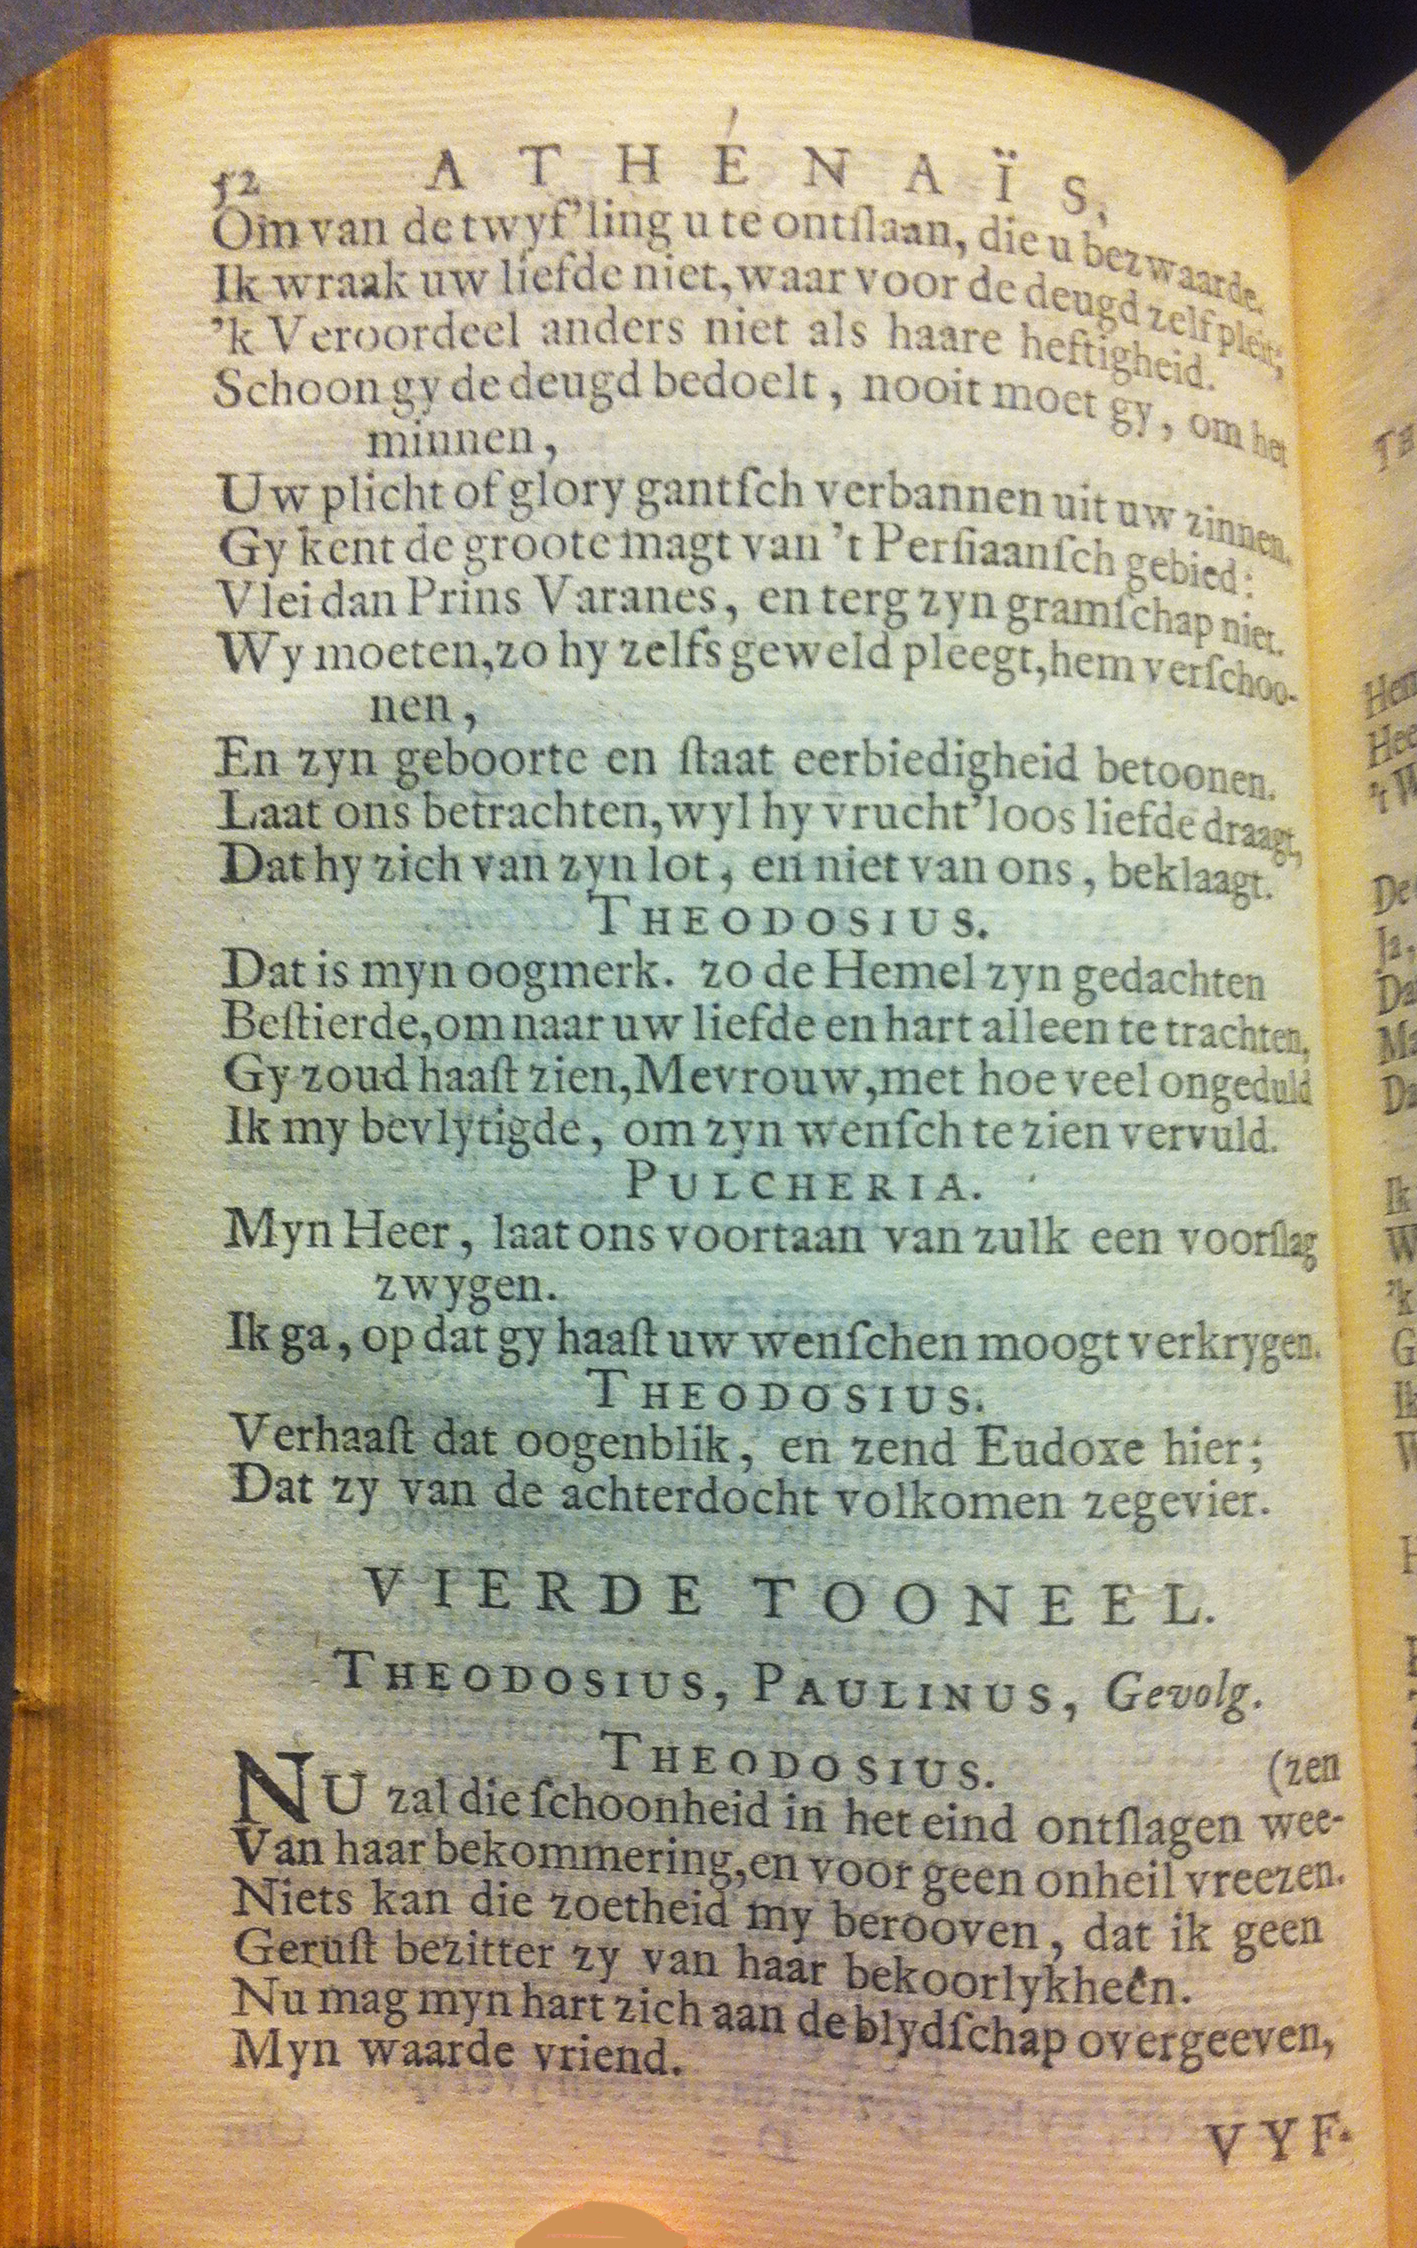 52 ATHÉNAÏS,
Om van de twyf'ling u te ontſlaan, die u bezwaarde.
Ik wraak uw liefde niet, waar voor de deugd zelf pleit;
'k Veroordeel anders niet als haare heftigheid.
Schoon gy de deugd bedoelt, nooit moet gy, om het
minnen,
Uw plicht of glory gantſch verbannen uit uw zinnen.
Gy kent de groote magt van 't Perſiaanſch gebied:
Vlei dan Prins Varanes, en terg zyn gramſchap niet.
Wy moeten, zo hy zelfs geweld pleegt, hem verſchoo-
nen,
En zyn geboorte en ſtaat eerbiedigheid betoonen.
Laat ons betrachten, wyl hy vrucht'loos liefde draagt,
Dat hy zich van zyn lot, en niet van ons, beklaagt.
THEODOSIUS.
Dat is myn oogmerk. zo de Hemel zyn gedachten
Beſtierde, om naar uw liefde en hart alleen te trachten,
Gy zoud haaſt zien, Mevrouw, met hoe veel ongeduld
Ik my bevlytigde, om zyn wenſch te zien vervuld.
PULCHERIA.
Myn Heer, laat ons voortaan van zulk een voorſlag
zwygen.
Ik ga, op dat gy haaſt uw wenſchen moogt verkrygen.
THEODOSIUS.
Verhaaſt dat oogenblik, en zend Eudoxe hier;
Dat zy van de achterdocht volkomen zegevier.
VIERDE TOONEEL.
THEODOSIUS, PAULINUS, Gevolg.
THEODOSIUS. (zen
NU zal die ſchoonheid in het eind ontſlagen wee-
Van haar bekommering, en voor geen onheil vreezen.
Niets kan die zoetheid my berooven, dat ik geen
Geruſt bezitter zy van haar bekoorlykheên.
Nu mag myn hart zich aan de blydſchap overgeeven,
Myn waarde vriend.
VYF-